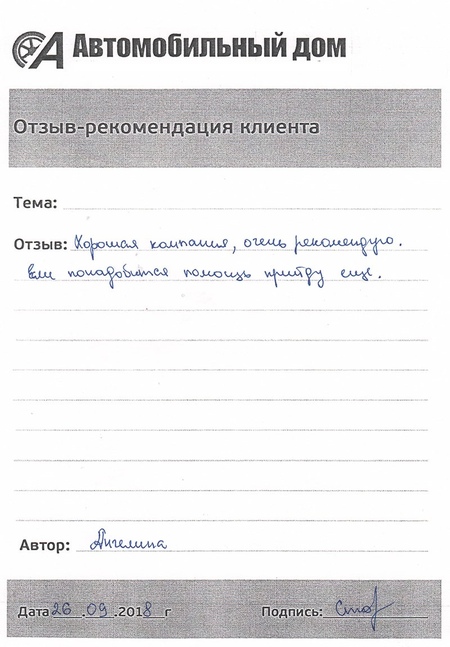 Автомобильный дом
Отзыв-рекомендация клиента
Тема:
Отзыв: Хорошая компания, очень рекомендую.
Если понадобится помощь прийду еще.
Автор: Ангелина
Дата 26 .09 .2018 г Подпись: